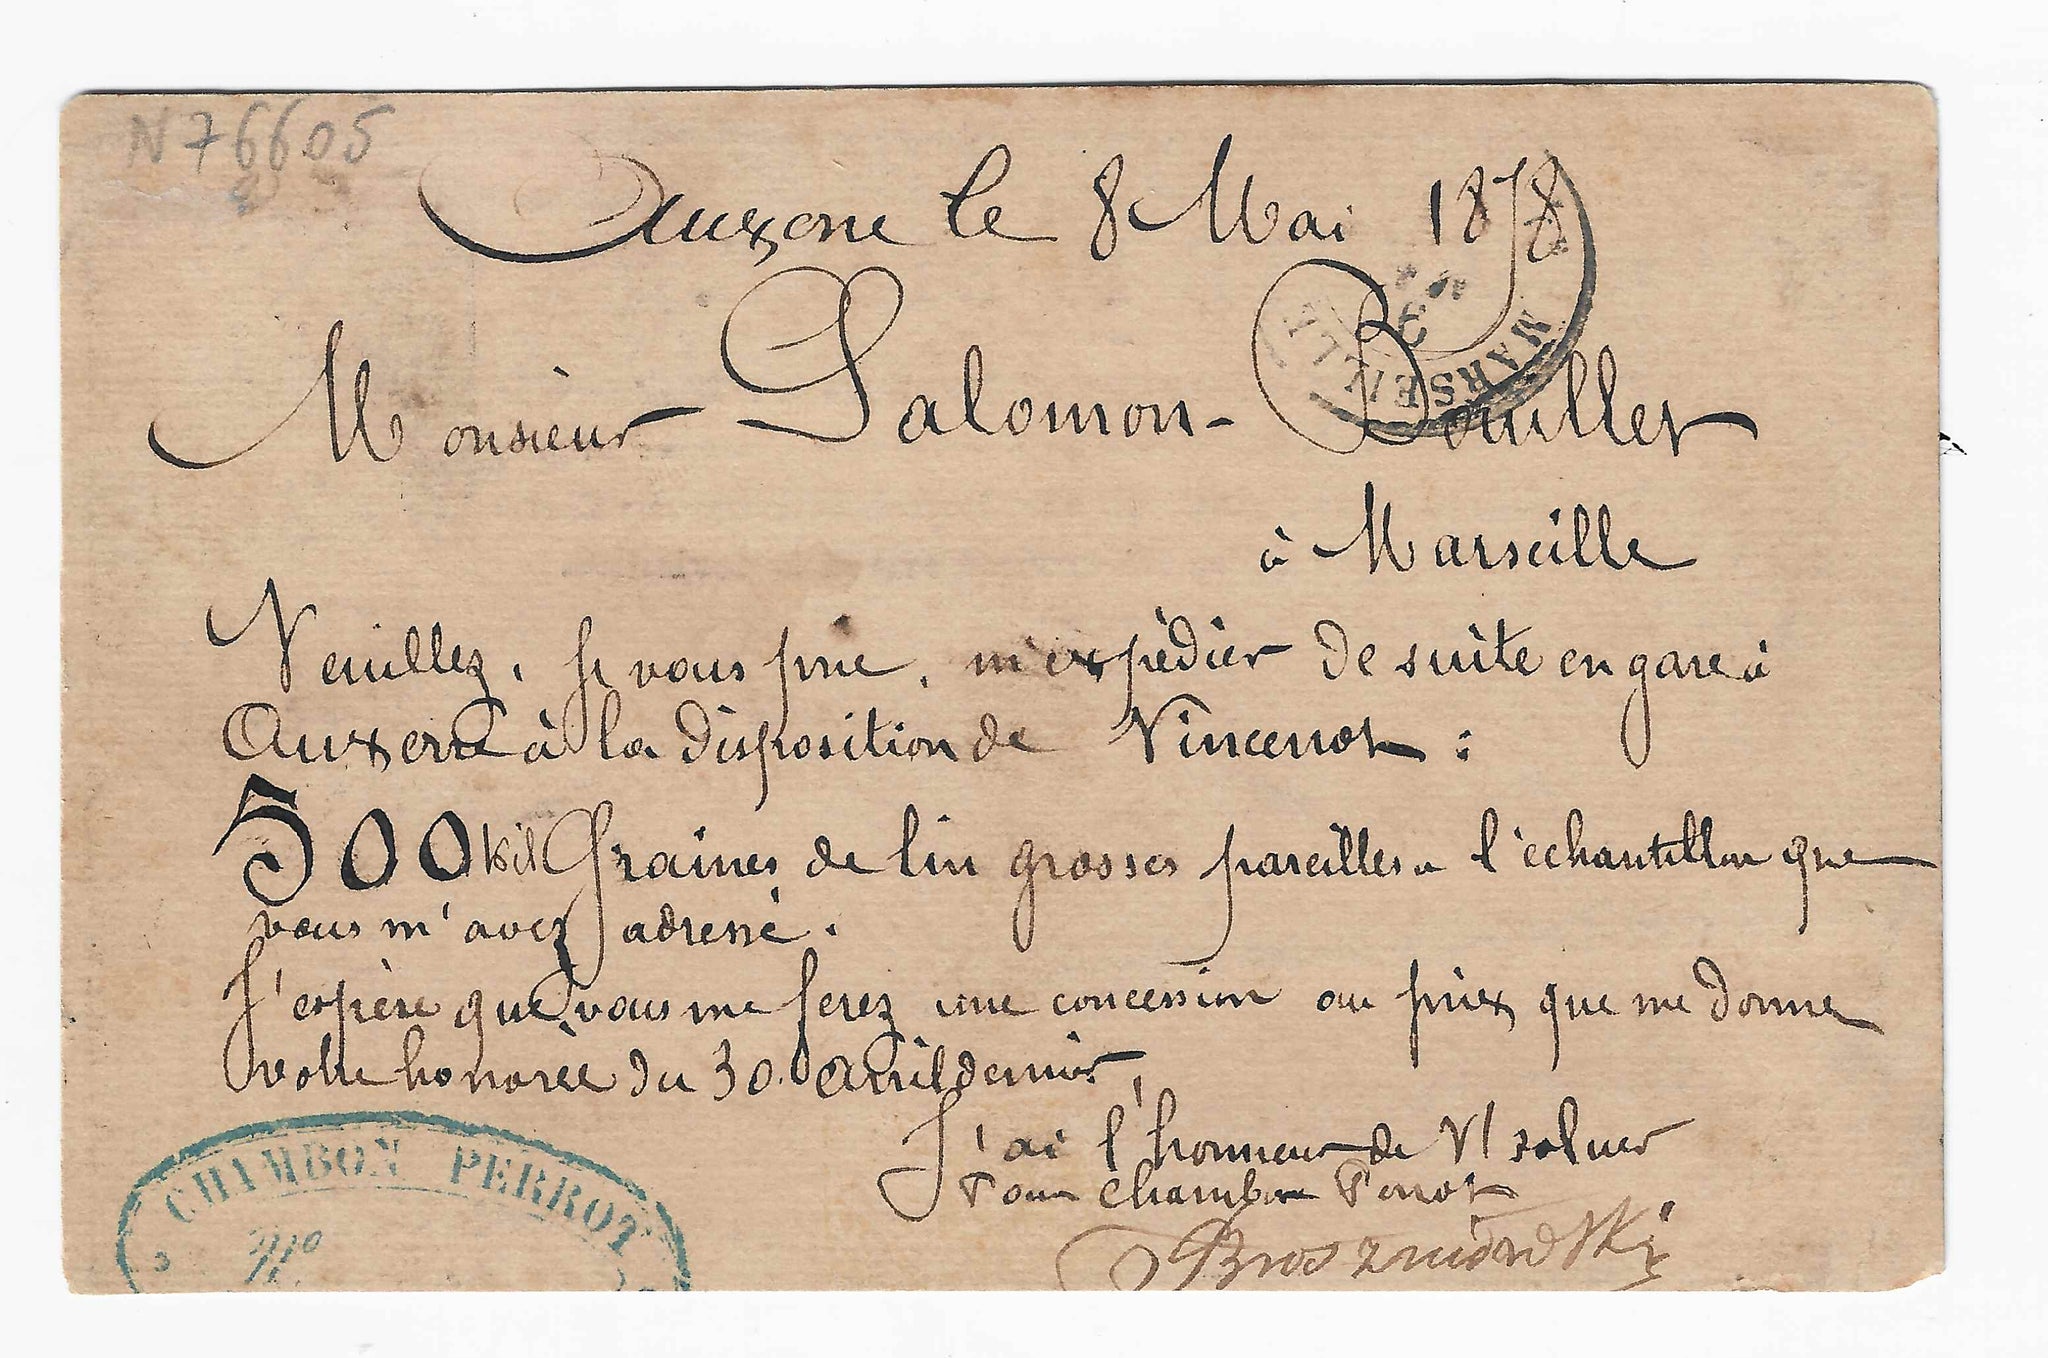 N76605
Auxonne le 8 Mai 1878
MARSEILLE
3
Monsieur Salomon-Bouillet
à Marseille
Veuillez, je vous prie, m'expédier de suite en gare à
Auxerre à la disposition de Vincenot :
500 kil Graines de lin grosses pareilles a l'échantillon que
vous m'avez adressé.
J'espère que vous me ferez une concession au prix que me donne
votre honorée du 30 Avril dernier,
J'ai l'honneur de Vs saluer
Pour Chambon Perrot
CHAMBON PERROT